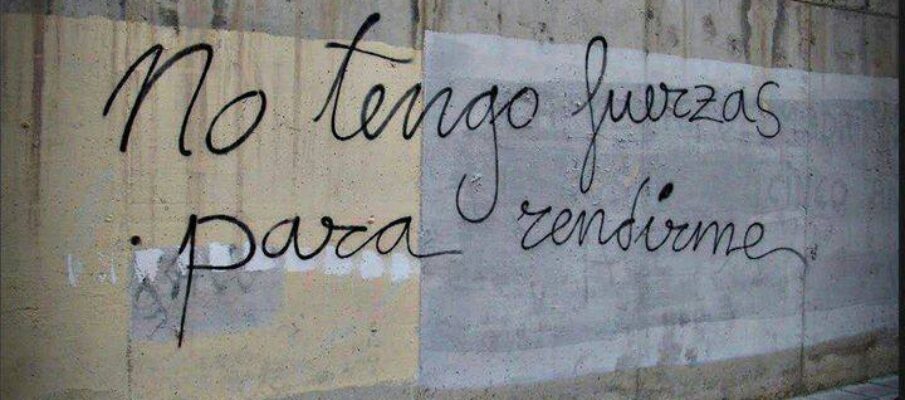 No tengo fuerzas
para rendirme